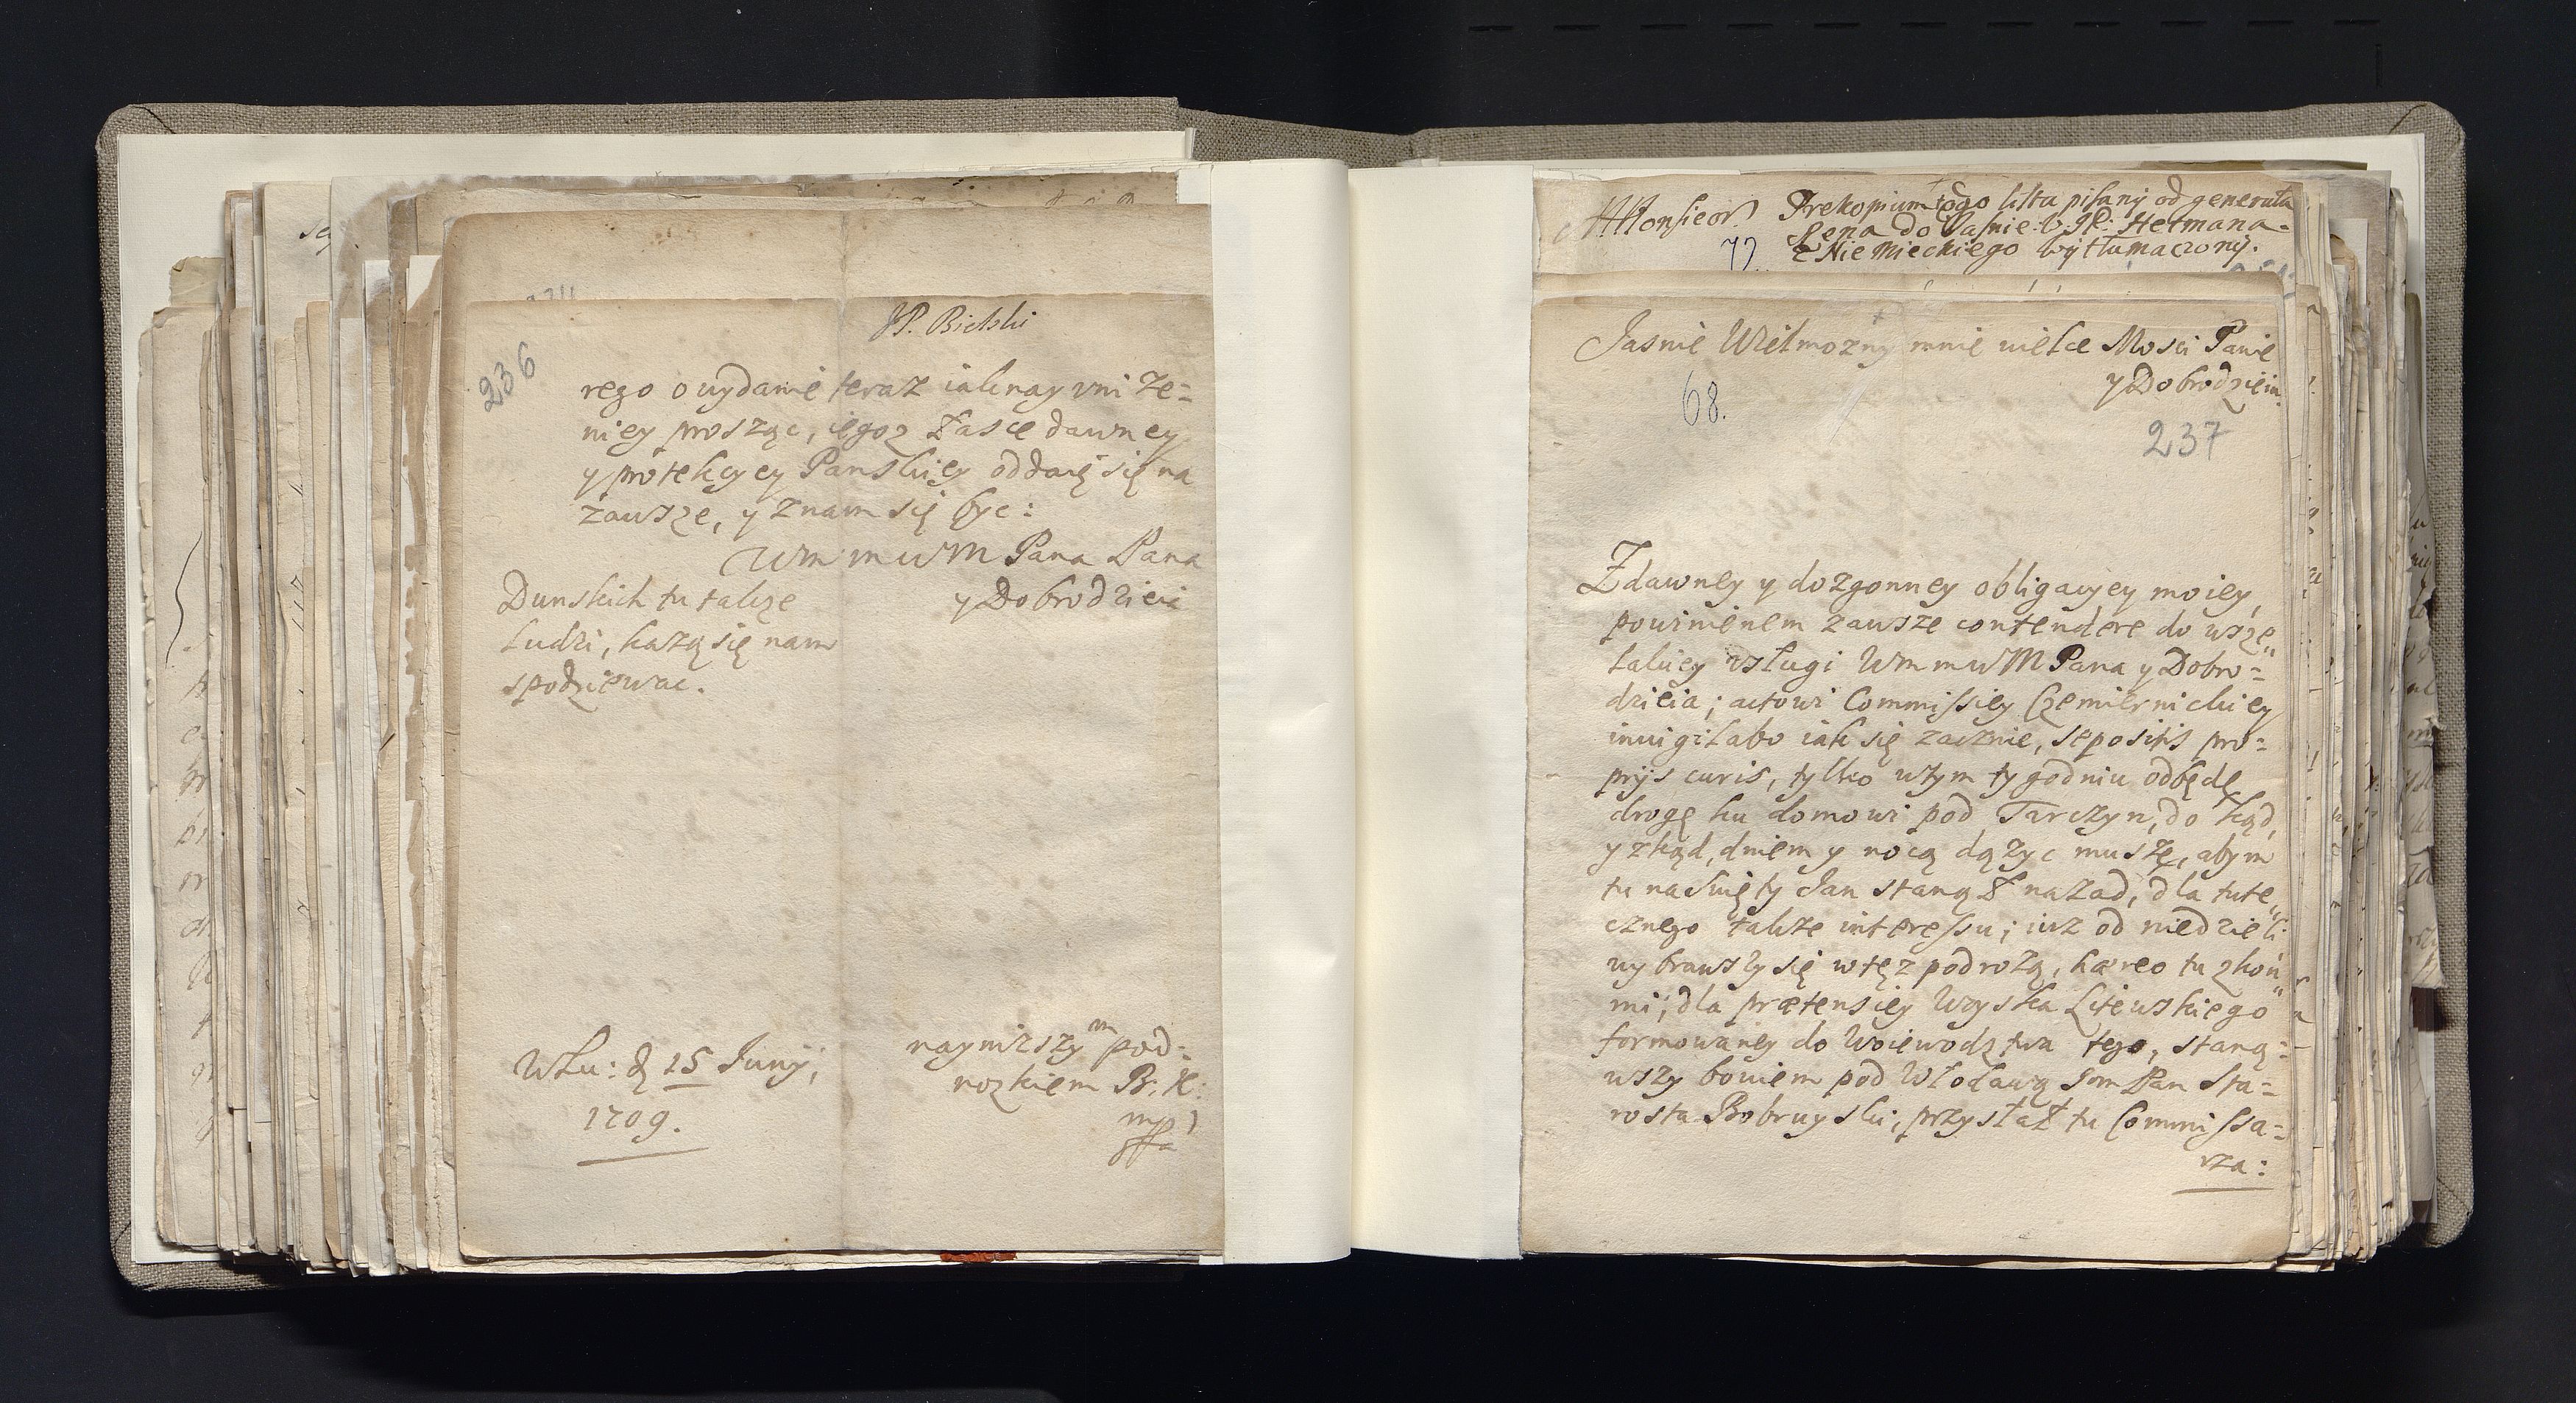 JP. Bielski
236
rego o wydanie teraz iaknayuniże=
niey prosząc, iegoz Łasce dawney
y protekcyey Panskiey oddaię się na
zawsze, y znam się byc:
WmmwM Pana Pana
y Dobrodzieia
Dunskich tu takze
Ludzi, każą się nam
spodziewac.
naynizszym pod=
nozkiem B: K:
mpp
WLu: d 15 Junij,
1709.
Monsieur
77.
Przekopiumtogo listu pisany od generała
do Jasnie W JP: Hetmana
z Niemieckiego wytłumaczony.
Jasnie Wielmozny mnie wielce Mosci Panie
y Dobrodzieiu
68.
237
Zdawney y dozgonney obligacyey moiey,
powinienem zawsze contendere do wsze„
lakiey vsługi WmmwM Pana y Dobro=
dzieia; actowi Commissiey Czemiernickiey
inuigilabo iak się zacznie, sepositis pro=
prijs curis, tylko wtym tygodniu odbędę
drogę ku domowi pod Tarczyn, do kąd,
y zkąd, dniem y nocą dązyc muszę, abym
tu na Swięty Jan stanął nazad, dla tute„
cznego takze interessu; iuz od niedzieli
wybrawszy się w tęz podrożą, haereo tu zkoń„
mi, dla praetensiey Woyska Litewskiego
formowaney do Woiewodztwa tego, staną=
wszy bowiem pod Włodawą Jm Pan Sta=
rosta Bobruyski, przysłał tu Commissa=
rza: